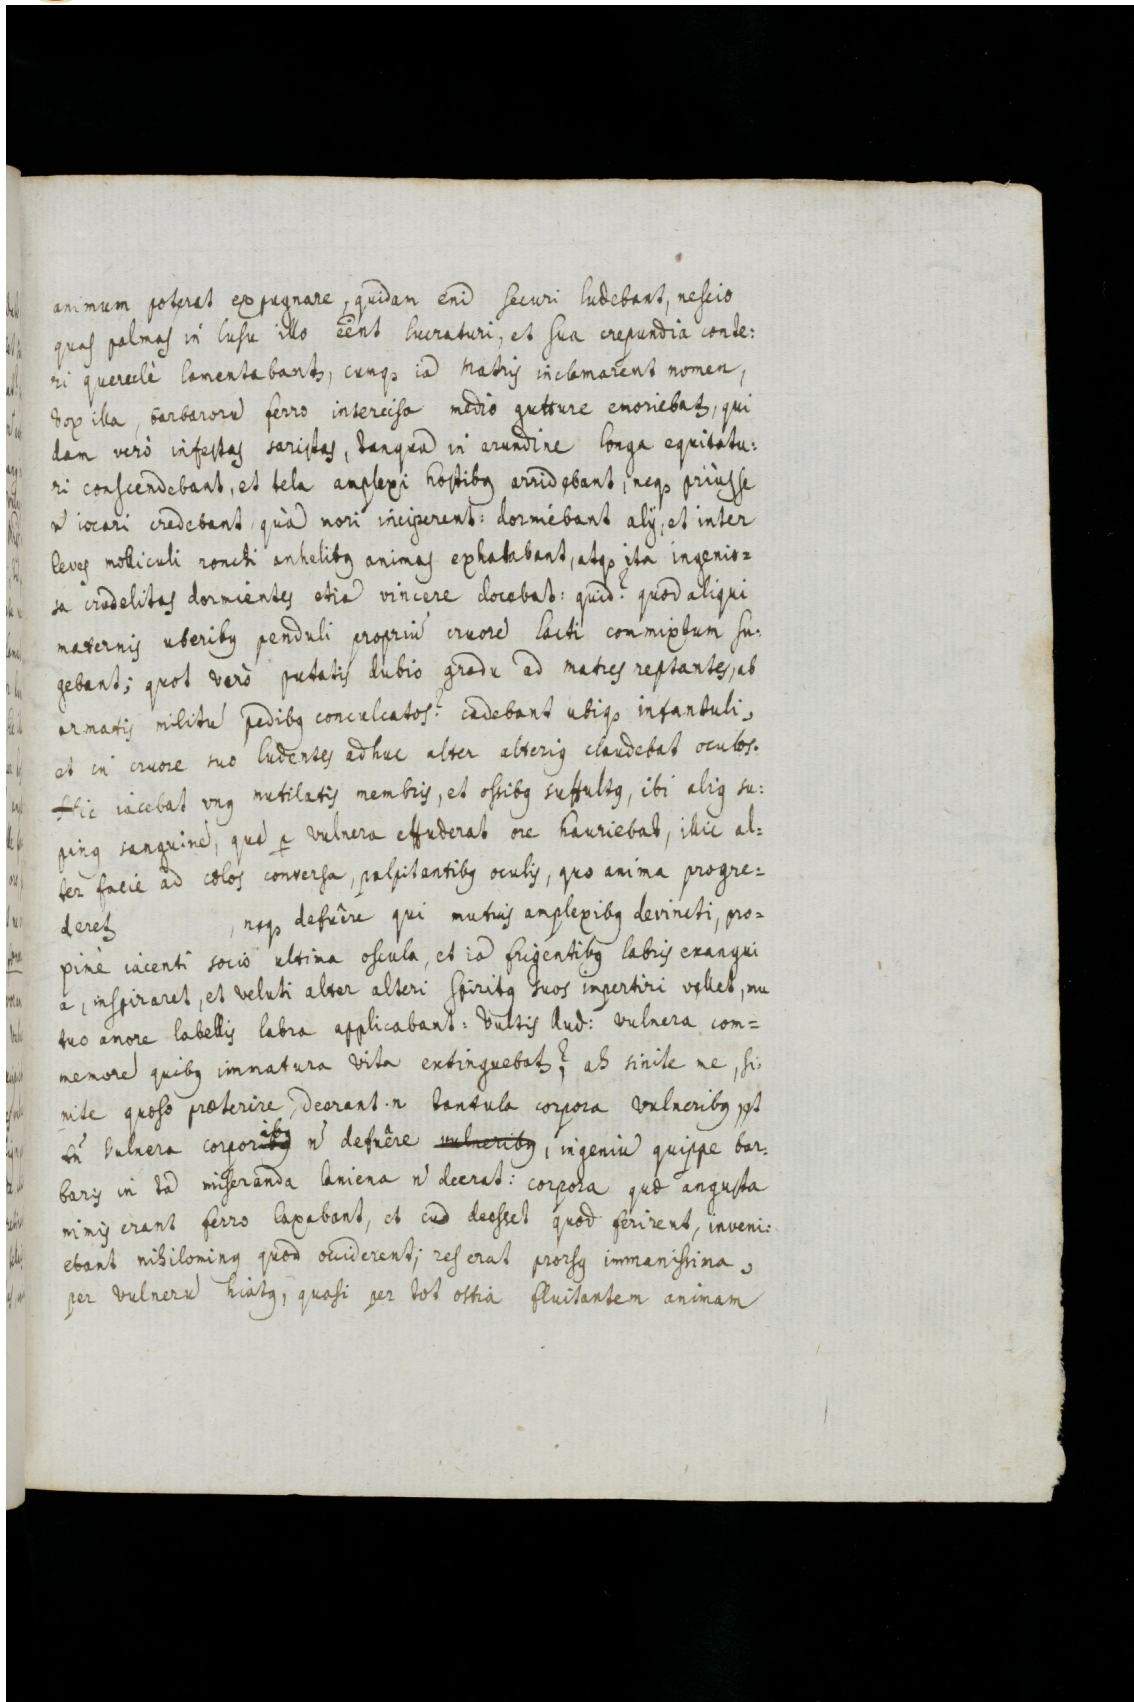 animum poterat expugnare, quidam enī securi ludebant, nescio
quas palmas in lusu illo eēnt lucraturi, et sua crepundia conte:
ri querulè lamentabantꝫ, cumqꝫ iā Matris inclamarent nomen,
vox illa, barbarorū ferro intercisa medio gutture emoriebatꝫ, qui
dam verò infestas saristas, tanquā in arundine longa equitatu:
ri conscendebant, et tela amplexi hostibꝰ arridebant, neqꝫ priùs se
n̄ iocari credebant quā mori inciperent: dormiebant alij, et inter
leves molliculi ronchi anhelitꝰ animas exhalabant, atqꝫ ita ingenio=
sa crudelitas dormientes etiā vincere docebat: quid? quod aliqui
maternis uberibꝰ penduli propriū cruorē lacti commixtum su:
gebant; quot verò putatis dubio gradu ad matres reptantes, ab
armatis militū pedibꝰ conculcatos? cadebant ubiqꝫ infantuli,
et in cruore suo ludentes adhuc alter alteriꝰ claudebat oculos.
Hic iacebat unꝰ mutilatis membris, et ossibꝰ suffultꝰ, ibi aliꝰ su:
pinꝰ sanguinē, quē ꝑ vulnera effuderat ore hauriebat, illic al=
ter facie ad cœlos conversa, palpitantibꝰ oculis, quo anima progre=
deretꝫ , neqꝫ defuêre qui mutuis amplexibꝰ devincti, pro=
pinè iacenti socio ultima oscula, et iā frigentibꝰ labris exangui
a, inspiraret, et veluti alter alteri spiritꝰ suos impertiri vellet, mu
tuo amore labellis labra applicabant: Vultis Aud: vulnera com=
memorē quibꝰ immatura vita extinguebatꝫ? ah sinite me, si:
nite quæso præterire, deerant n̄ tantula corpora vulneribꝰ, et
tn̄ vulnera corporibꝰ n̄ defuêre vulneribꝰ, ingeniū quippe bar:
baris in tā miseranda laniena n̄ deerat: corpora quæ angusta
nimis erant ferro laxabant, et cū deesset quod ferirent, inveni:
ebant nihilominꝰ quod occiderent; res erat prorsꝰ immanissima,
per vulnerū hiatꝰ, quasi per tot ostia fluitantem animam